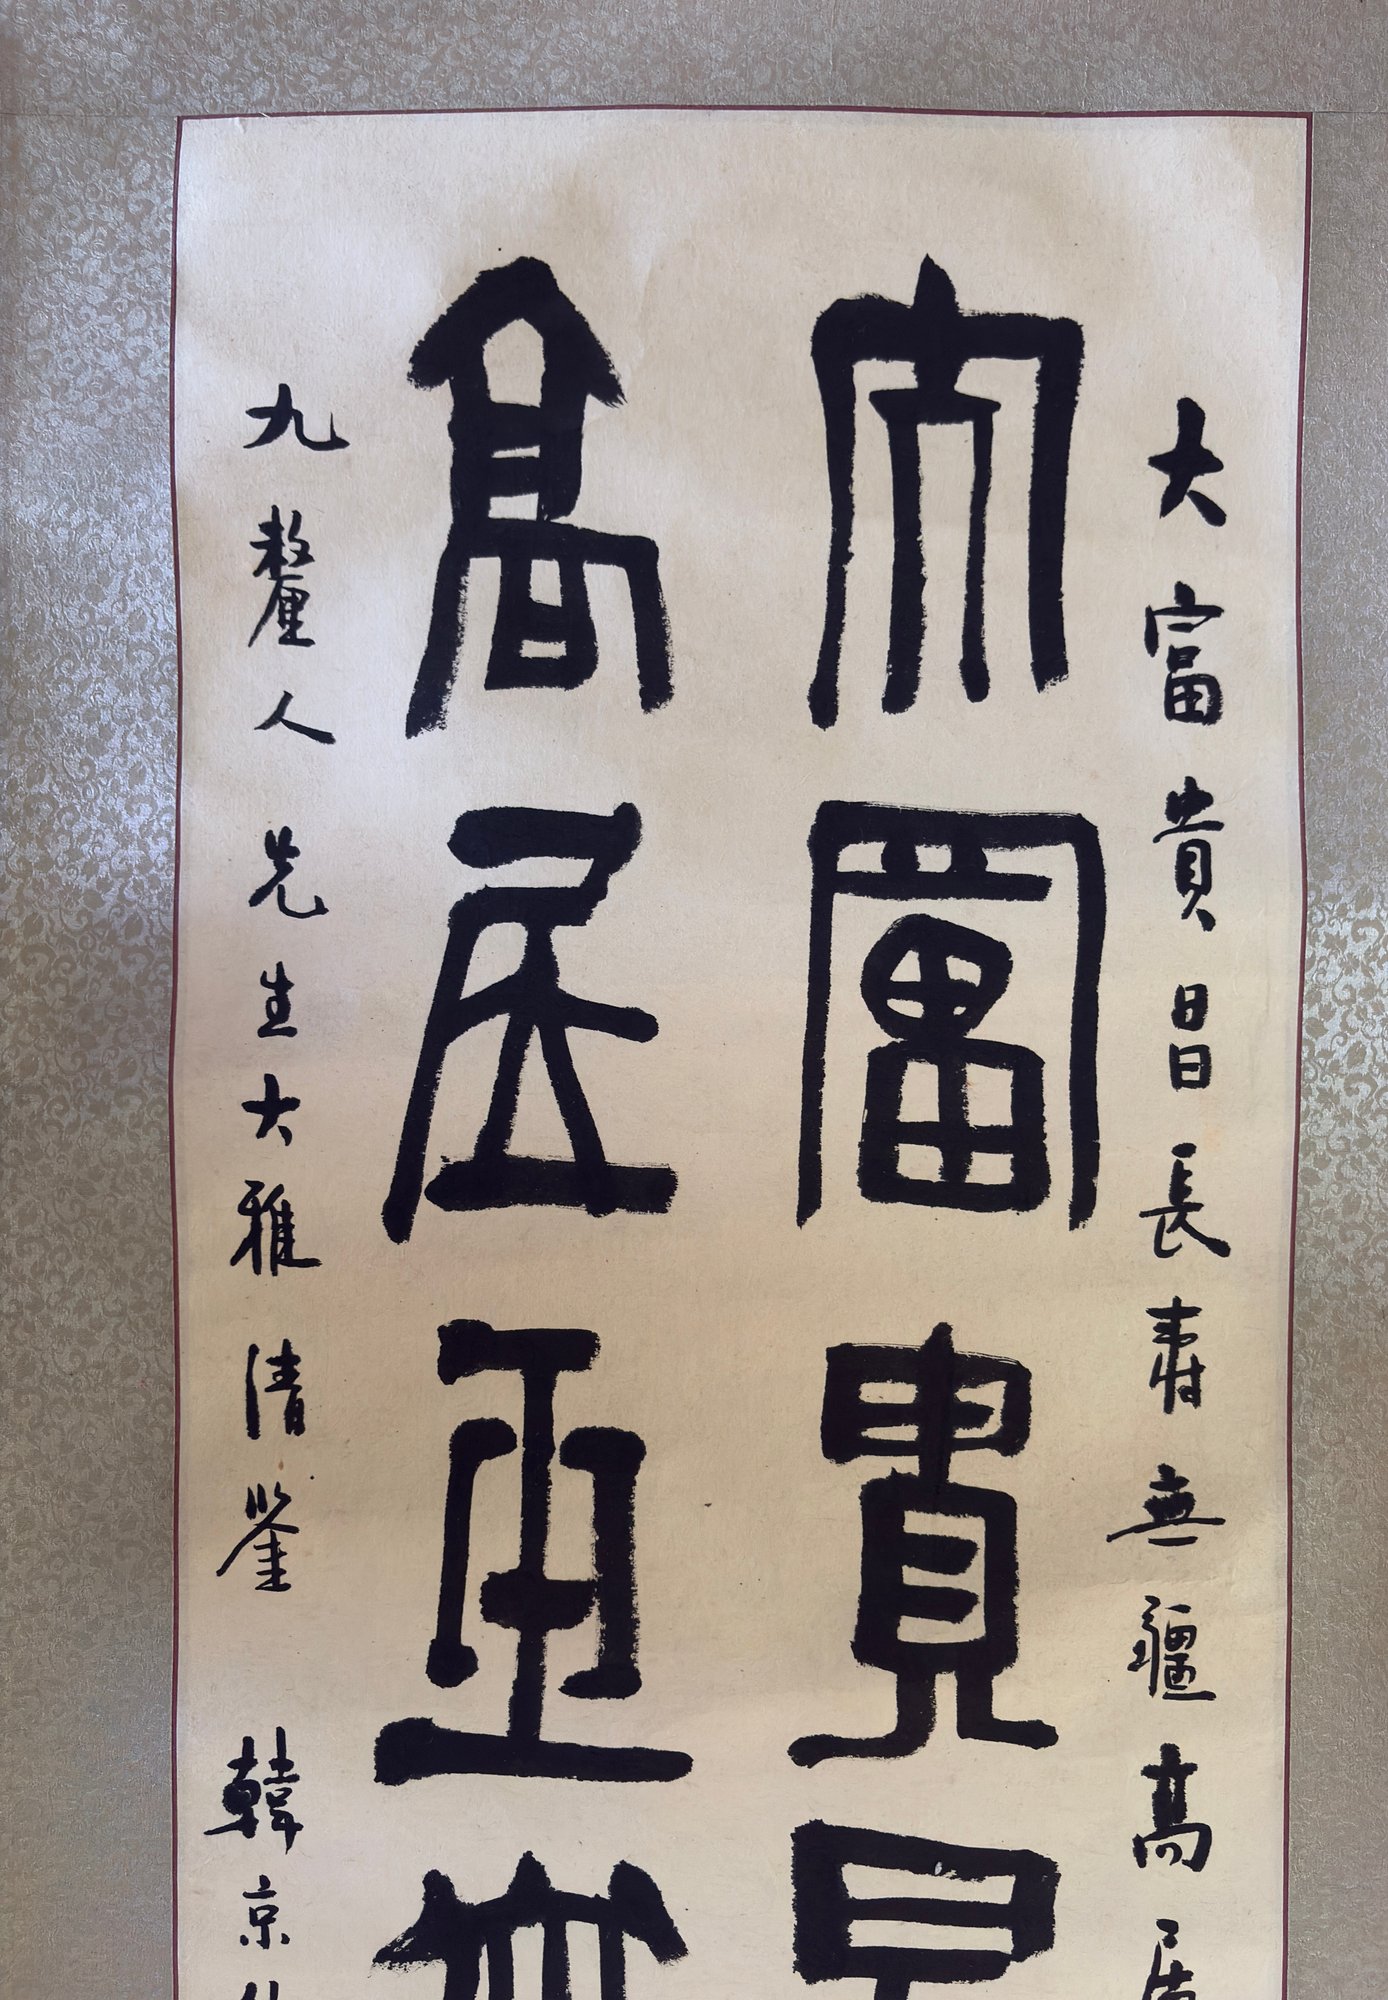 大富貴昌長壽無疆高居
大富貴
高居
九釐人先生大雅清鑒 韓京